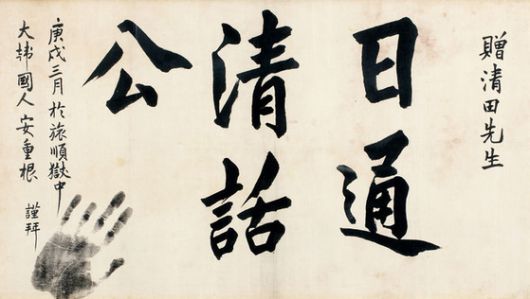 贈清田先生
日通
清話
公
庚戌三月於旅順獄中
大韩國人安重根 謹拜